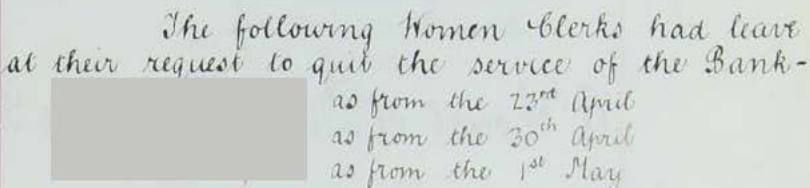 The following Women Clerks had leave
at their request to quit the service of the Bank-
as from the 23rd April
as from the 30th April
as from the 1st May